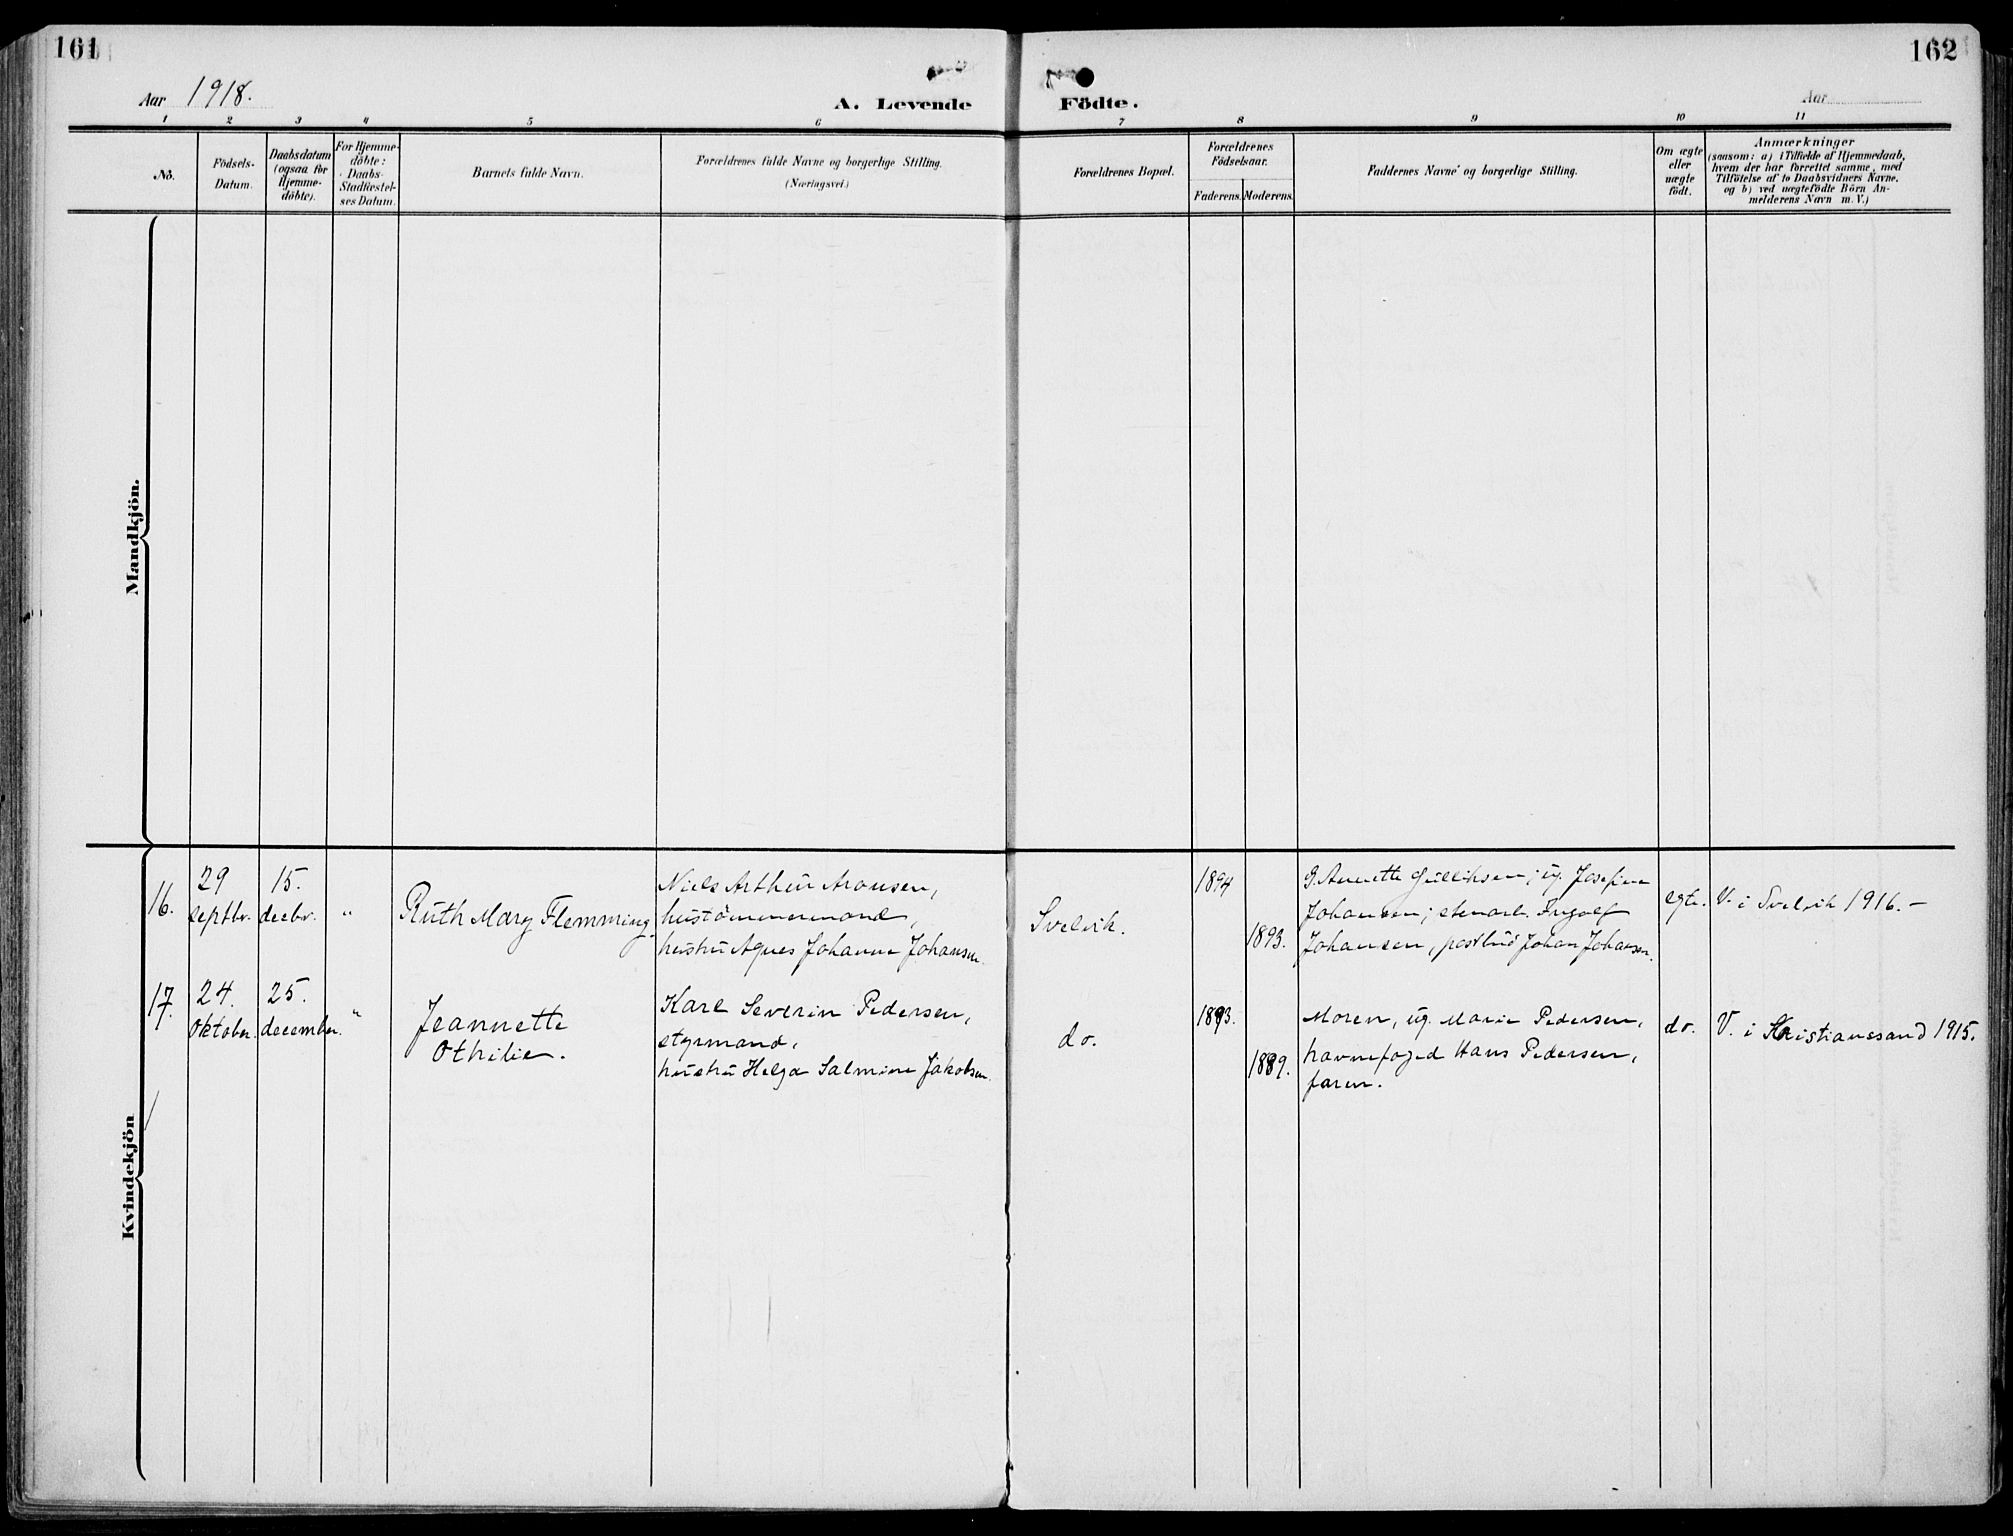 161
162
Aar 1918.
A. Levende Födte.
Aar
1 2 3 4 5 6 7 8 9 10 11
Nö.
Födsels-
Datum.
Daabsdatum
(ogsaa for
Hjemme-
döbte).
For Hjemme-
döbte:
Daabs-
Stadfæstel-
ses Datum.
Barnets fulde Navn.
Forældrenes fulde Navne og borgerlige Stilling.
(Næringsvei.)
Forældrenes Bopæl.
Forældrenes
Födselsaar.
Faderens. Moderens.
Faddernes Navne og borgerlige Stilling.
Om ægte
eller
uægte
födt.
Anmærkninger
(saasom: a) i Tilfælde af Hjemmedaab,
hvem der har forrettet samme, med
Tilföielse af to Daabsvidners Navne,
og b) ved uægtefödte Börn An-
melderens Navn m. V.)
Mandkjön.
Kvindekjön
16.
29
septbr.
15.
decbr.
"
Ruth Mary Flemming.
Niels Arthur Aronsen,
hustömmermand,
hustru Agnes Johanne Johansen.
Svelvik.
1894
1893.
G. Annette Gulliksen; ug. Josefine
Johansen; stenarb. Ingolf
Johansen, postbud Johan Johansen.
egte.
V. i Svelvik 1916. –
17.
24.
Oktober.
25.
december.
"
Jeannette
Othilie.
Karl Severin Pedersen,
styrmand,
hustru Helga Salmine Jakobsen.
do.
1893.
1889.
Moren, ug. Marie Pedersen,
havnefoged Hans Pedersen,
faren.
do.
V. i Kristianssand 1915.